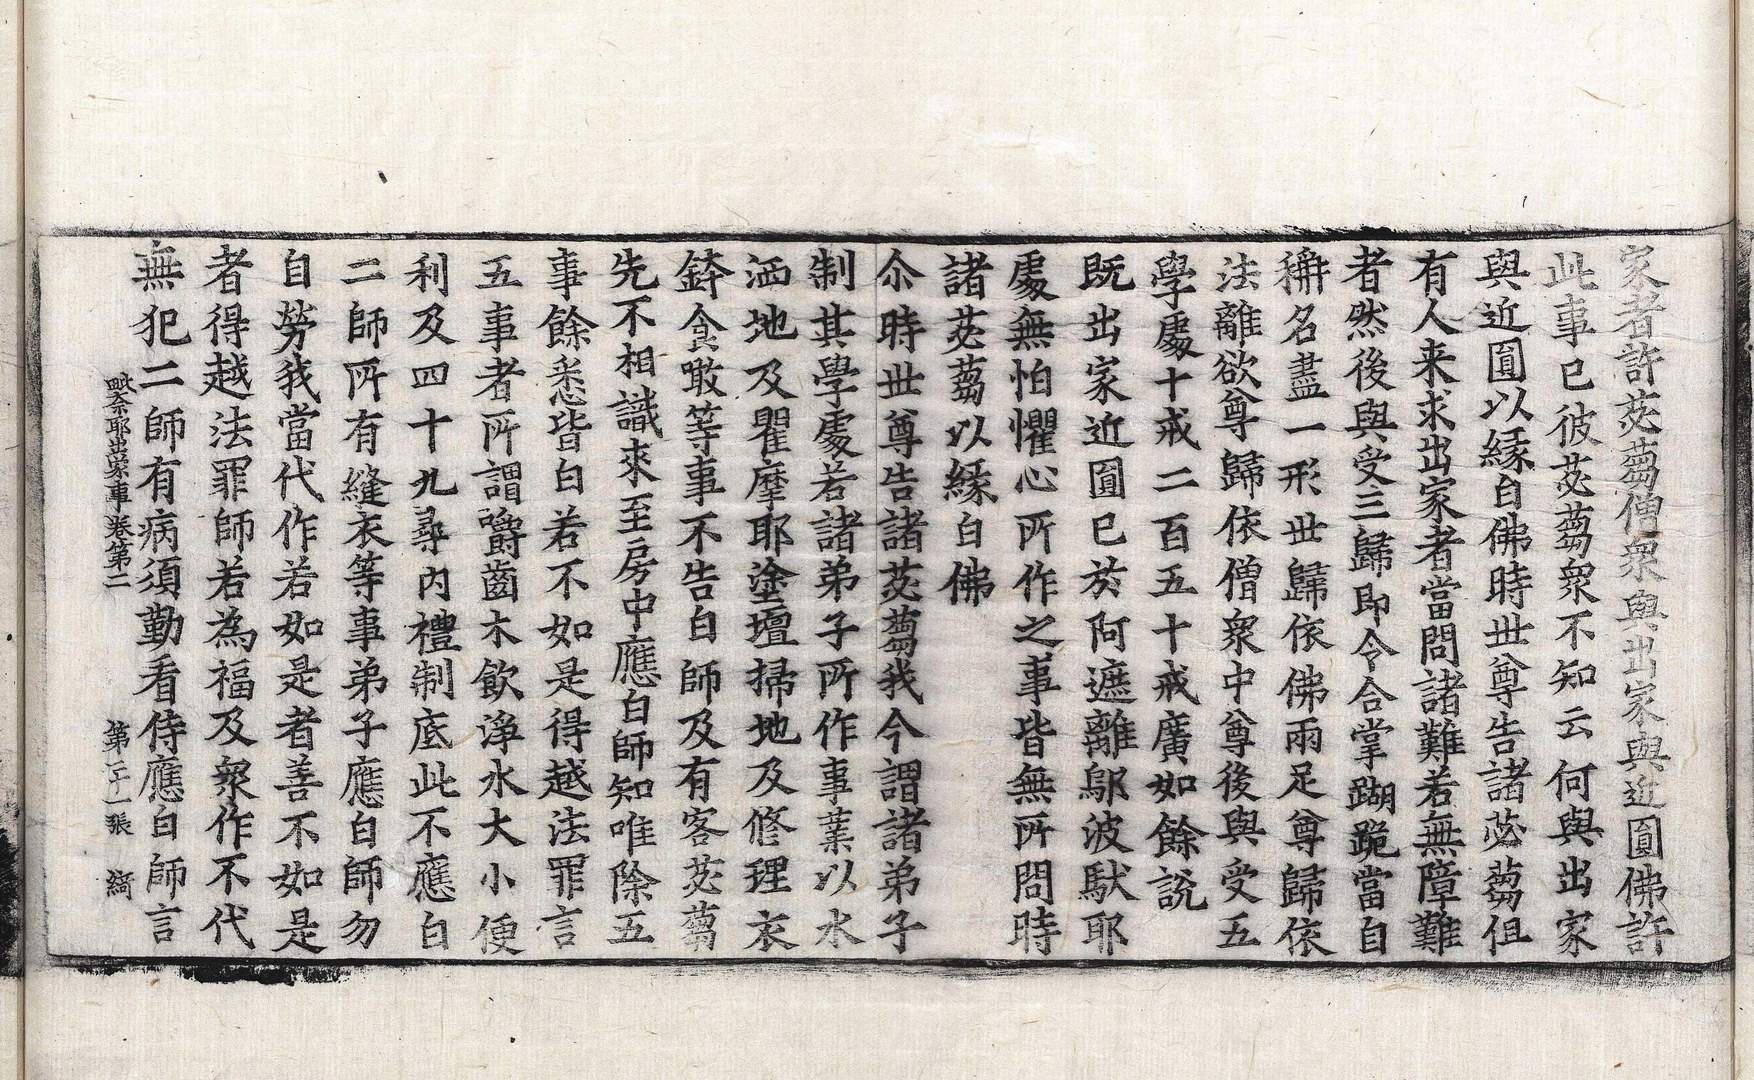 家者許苾蒭僧衆與出家與近圓佛許
此事已彼苾蒭衆不知云何與出家
與近圓以緣白佛時世尊告諸苾蒭但
有人来求出家者當問諸難若無障難
者然後與受三歸即令合掌蹋跪當自
稱名盡一形世歸依佛兩足尊歸依
法離欲尊歸依僧衆中尊後與受五
學處十戒二百五十戒廣如餘說
既出家近圓已於阿遮離鄔波馱耶
處無怕懼心所作之事皆無所問時
諸苾蒭以緣白佛
尒時世尊告諸苾蒭我今謂諸弟子
制其學處若諸弟子所作事業以水
洒地及瞿摩耶塗壇掃地及修理衣
鉢食噉等事不告白師及有客苾蒭
先不相識來至房中應白師知唯除五
事餘悉皆白若不如是得越法罪言
五事者所謂嚼齒木飲淨水大小便
利及四十九尋內禮制底此不應白
二師所有縫衣等事弟子應白師勿
自勞我當代作若如是者善不如是
者得越法罪師若為福及衆作不代
無犯二師有病須勤看侍應白師言
毗奈耶出家事卷第二 第二十一張 綺